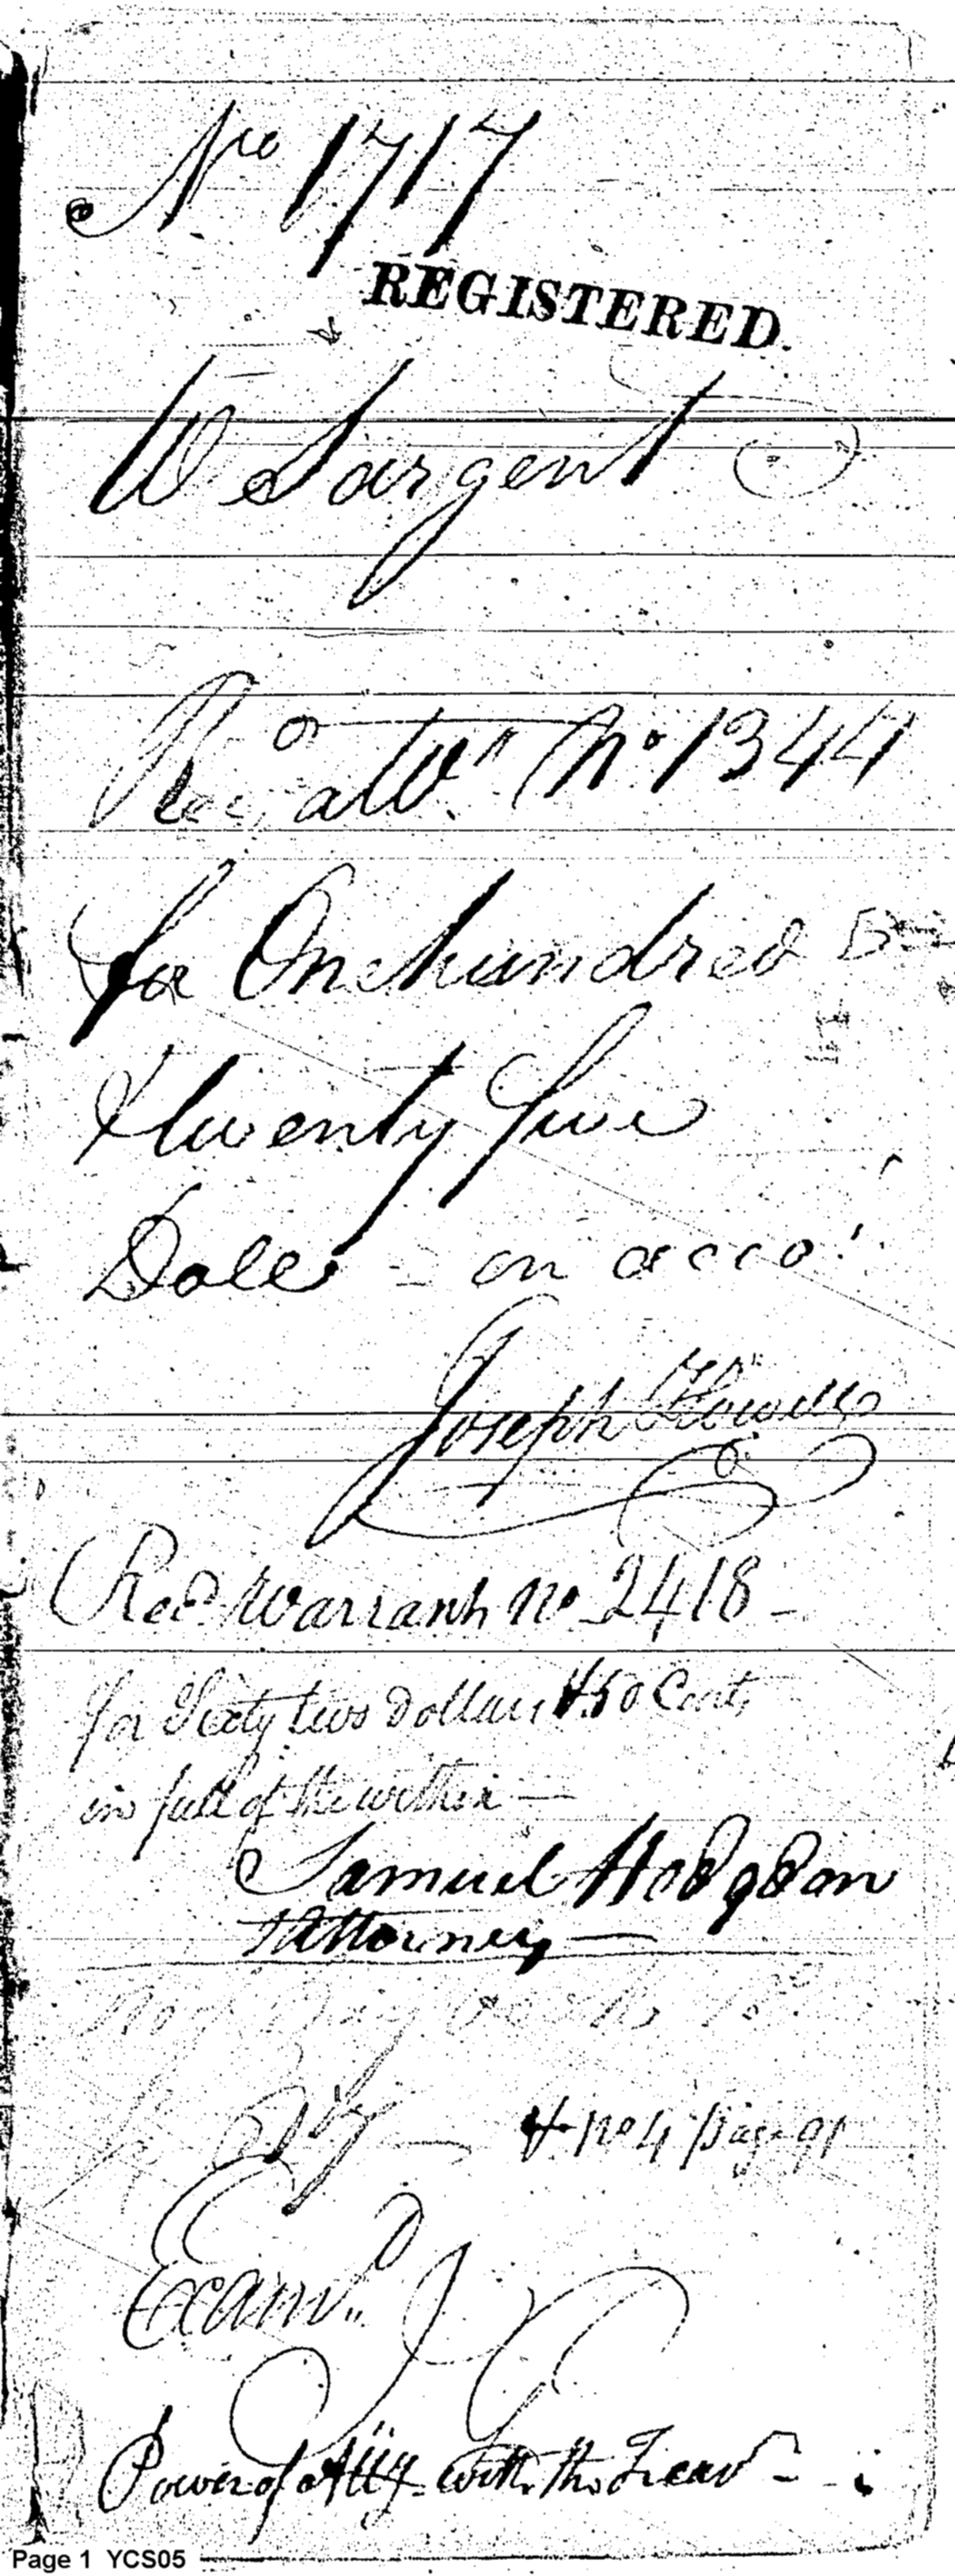 No 1717
REGISTERED.
W Sargent
Rec'd a Wt No 1344
for One hundred
& twenty five
Dolls - on acco't
Joseph Howell
Rec'd Warrant No 2418 -
for Sixty two Dollars & 50 Cents
in full of the within —
Samuel Hodgdon
Attorney —
& No 4 page 91
Exam'd
Power of Att'y with the Treas'r -
Page 1 YCS05